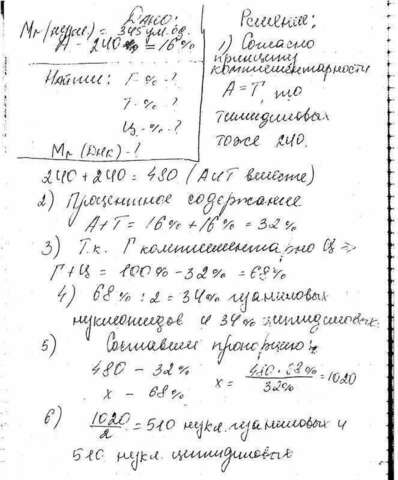 Дано:
Mr (нукл) = 345 ум. ед.
А - 240 = 16%
Найти: Г-%-?
Т-%-?
Ц-%-?
Mr (ДНК)-?
Решение:
1) Согласно
принципу
комплементарности
А = Т, то
тимидиловых
тоже 240.
240 + 240 = 480 (А и Т вместе)
2) Процентное содержание
А+Т = 16% + 16% = 32%
3) Т.к. Г комплементарно Ц =>
Г+Ц = 100% - 32% = 68%
4) 68% : 2 = 34% гуаниловых
нуклеотидов и 34% цитидиловых.
5) Составим пропорцию:
480 - 32%
x - 68%
x = 480 · 68% / 32% = 1020
6) 1020 / 2 = 510 нукл. гуаниловых и
510 нукл. цитидиловых